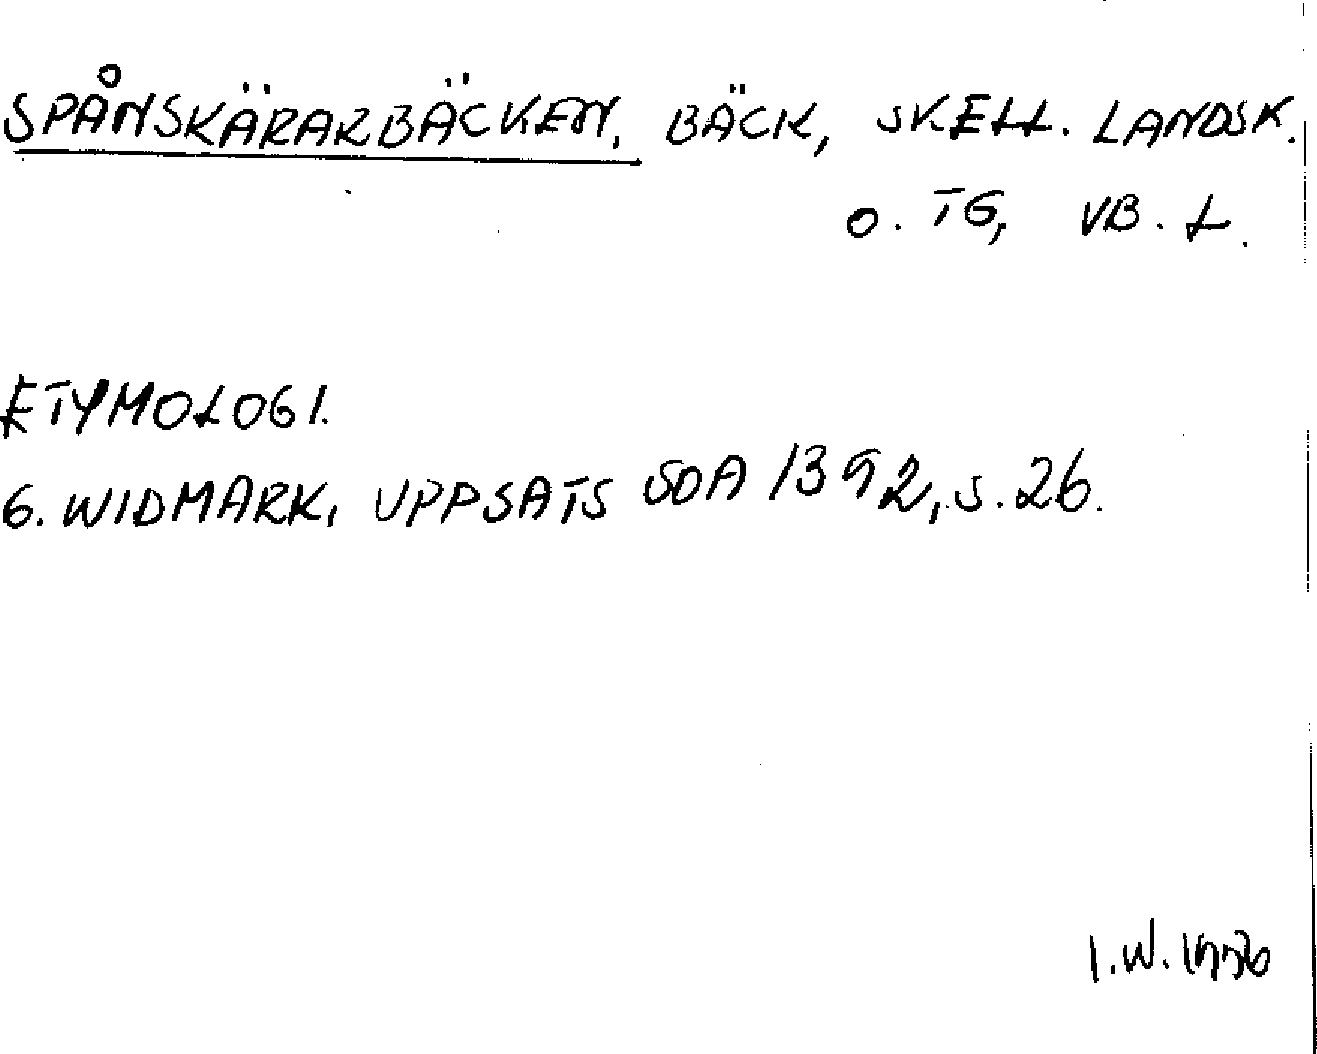 SPÅNSKÄRARBÄCKEN, BÄCK, SKELL. LANDSK.
O. TG, VB. L.
ETYMOLOGI.
G. WIDMARK, UPPSATS SOA 1392, S. 26.
I.W.